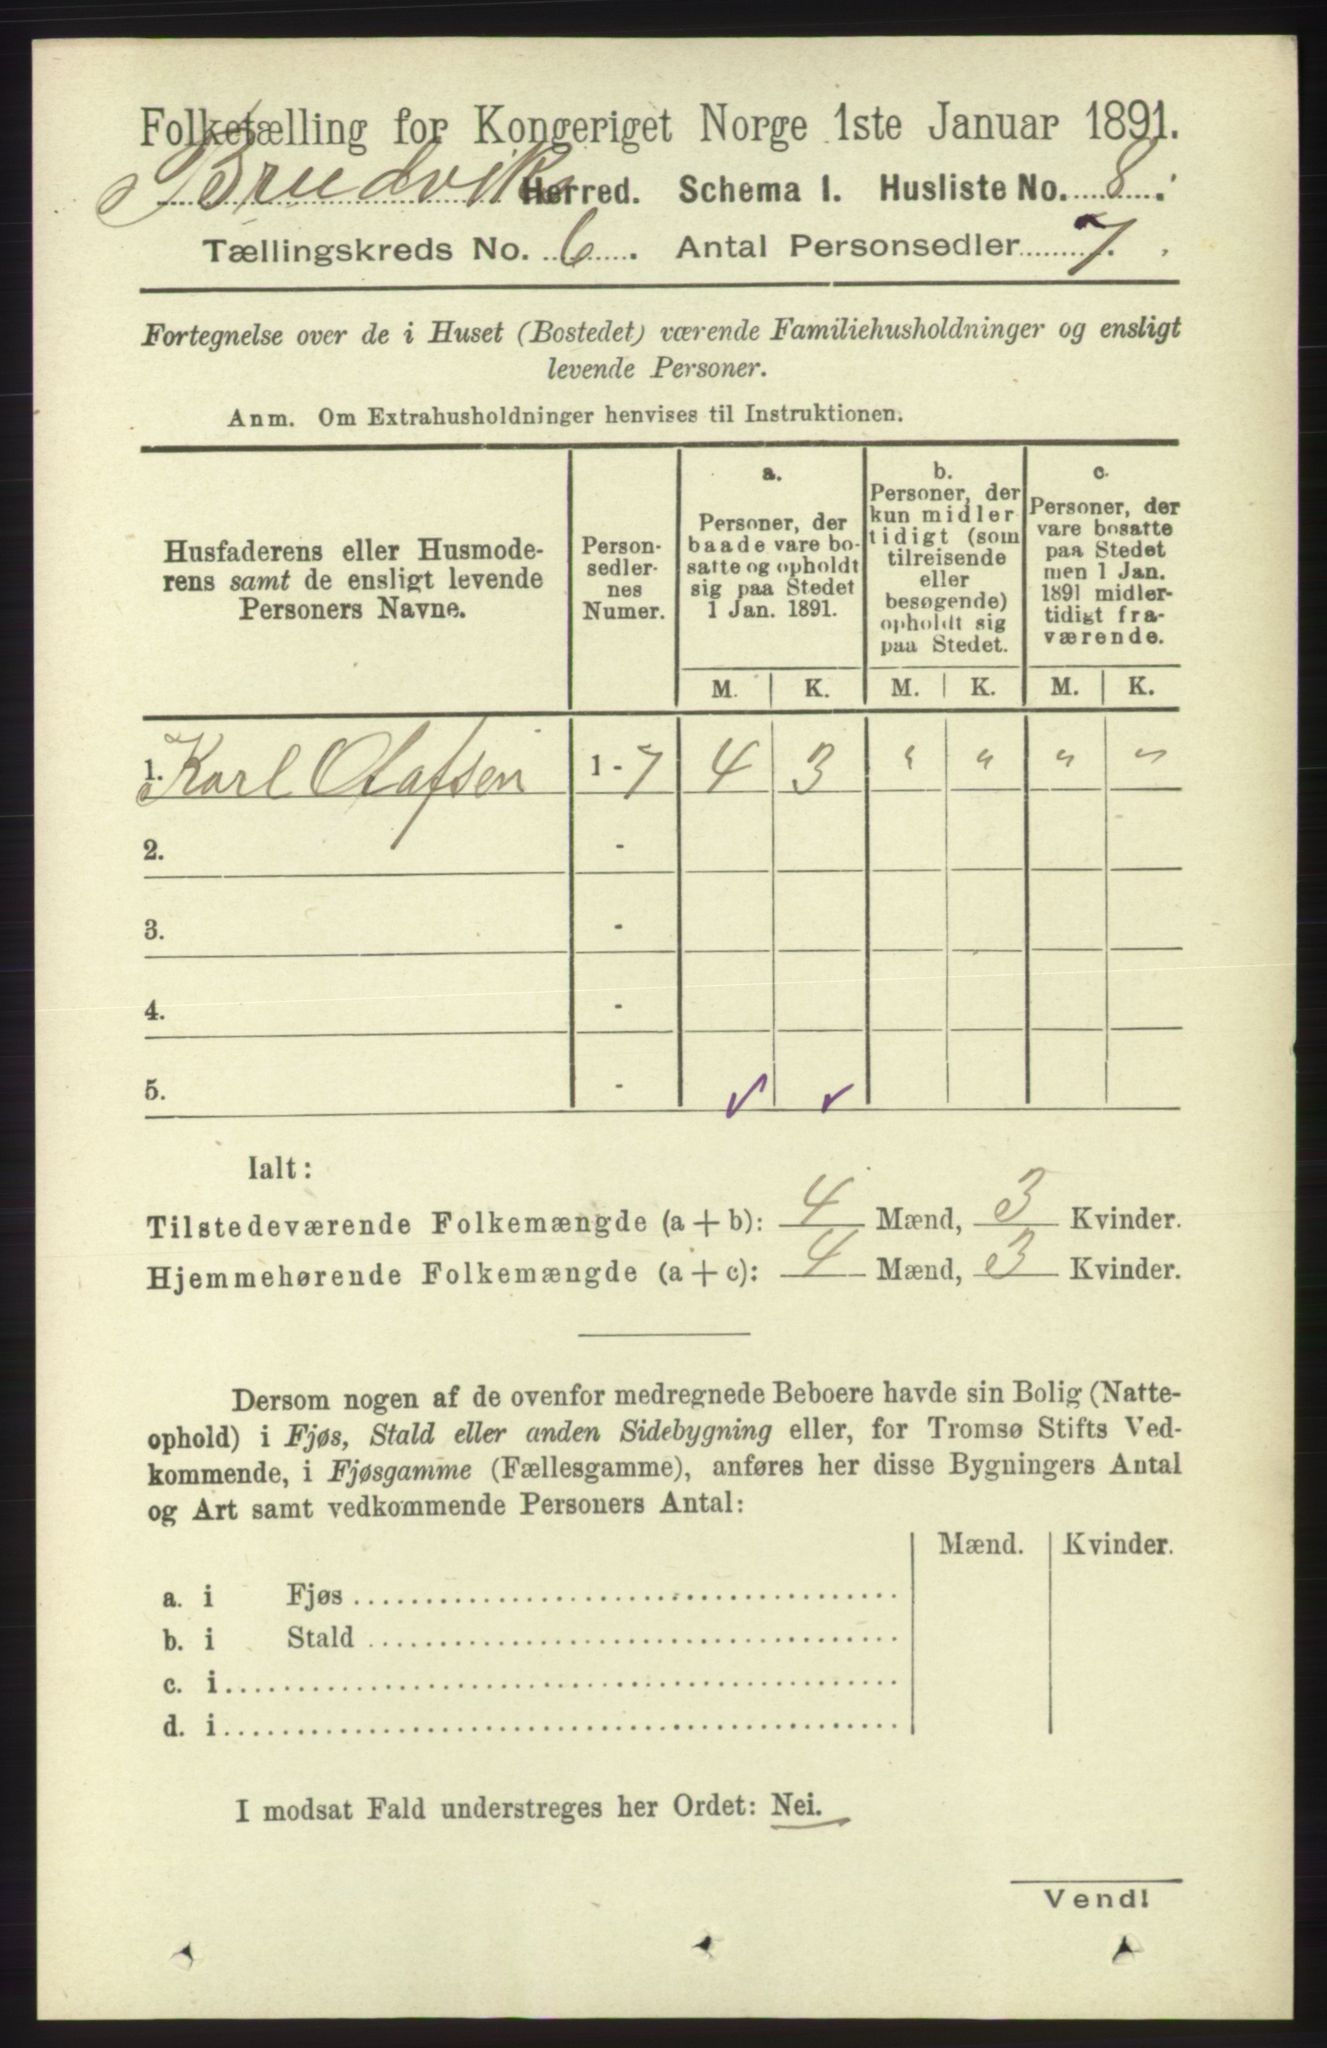 Folketælling for Kongeriget Norge 1ste Januar 1891.
Bruvik Herred. Schema 1. Husliste No. 8.
Tællingskreds No. 6. Antal Personsedler 7.
Fortegnelse over de i Huset (Bostedet) værende Familiehusholdninger og ensligt
levende Personer.
Anm. Om Extrahusholdninger henvises til Instruktionen.
Husfaderens eller Husmode-
rens samt de ensligt levende
Personers Navne.
Person-
sedler-
nes
Numer.
a.
Personer, der
baade vare bo-
satte og opholdt
sig paa Stedet
1 Jan. 1891.
b.
Personer, der
kun midler
tidigt (som
tilreisende
eller
besøgende)
opholdt sig
paa Stedet.
c.
Personer, der
vare bosatte
paa Stedet
men 1 Jan.
1891 midler-
tidigt fra-
værende.
M. K. M. K. M. K.
1. Karl Olafsen 1-7 4 3 " " " "
2. -
3. -
4. -
5. -
Ialt:
Tilstedeværende Folkemængde (a+b): 4 Mænd, 3 Kvinder.
Hjemmehørende Folkemængde (a+c): 4 Mænd, 3 Kvinder.
Dersom nogen af de ovenfor medregnede Beboere havde sin Bolig (Natte-
ophold) i Fjøs, Stald eller anden Sidebygning eller, for Tromsø Stifts Ved-
kommende, i Fjøsgamme (Fællesgamme), anføres her disse Bygningers Antal
og Art samt vedkommende Personers Antal:
Mænd. Kvinder.
a. i Fjøs
b. i Stald
c. i
d. i
I modsat Fald understreges her Ordet: Nei.
Vend!